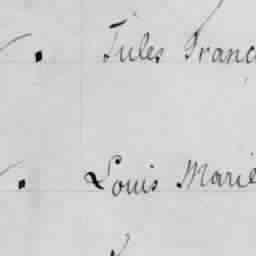 Jules Franc
Louis Marie